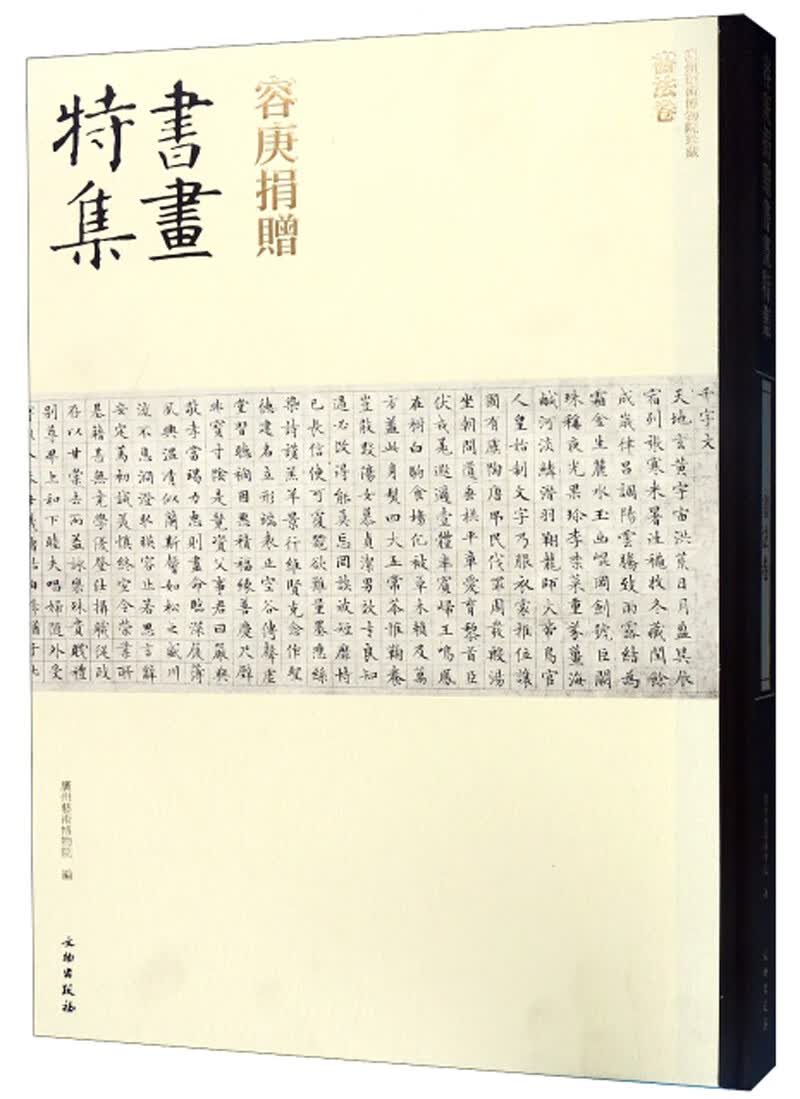 廣州藝術博物院珍藏
書法卷
容庚捐贈
書畫
特集
千字文
天地玄黃宇宙洪荒日月盈昃辰
宿列張寒來暑往秋收冬藏閏餘
成歲律呂調陽雲騰致雨露結為
霜金生麗水玉出崐岡劍號巨闕
珠稱夜光果珍李柰菜重芥薑海
鹹河淡鱗潛羽翔龍師火帝鳥官
人皇始制文字乃服衣裳推位讓
國有虞陶唐弔民伐罪周發殷湯
坐朝問道垂拱平章愛育黎首臣
伏戎羌遐邇壹體率賓歸王鳴鳳
在樹白駒食場化被草木賴及萬
方蓋此身髮四大五常恭惟鞠養
豈敢毀傷女慕貞潔男效才良知
過必改得能莫忘罔談彼短靡恃
己長信使可覆器欲難量墨悲絲
染詩讚羔羊景行維賢克念作聖
德建名立形端表正空谷傳聲虛
堂習聽禍因惡積福緣善慶尺璧
非寶寸陰是競資父事君曰嚴與
敬孝當竭力忠則盡命臨深履薄
夙興溫凊似蘭斯馨如松之盛川
流不息淵澄取暎容止若思言辭
安定篤初誠美慎終宜令榮業所
基籍甚無竟學優登仕攝職從政
存以甘棠去而益詠樂殊貴賤禮
別尊卑上和下睦夫唱婦隨外受
廣州藝術博物院 編
文物出版社